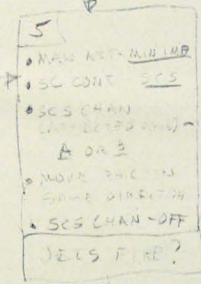 5
• MAN ATT - MIN IMP
• SC CONT SCS
• SCS CHAN
A OR B
• MOVE
SAME DIRECTION
• SCS CHAN - OFF
JETS FIRE?